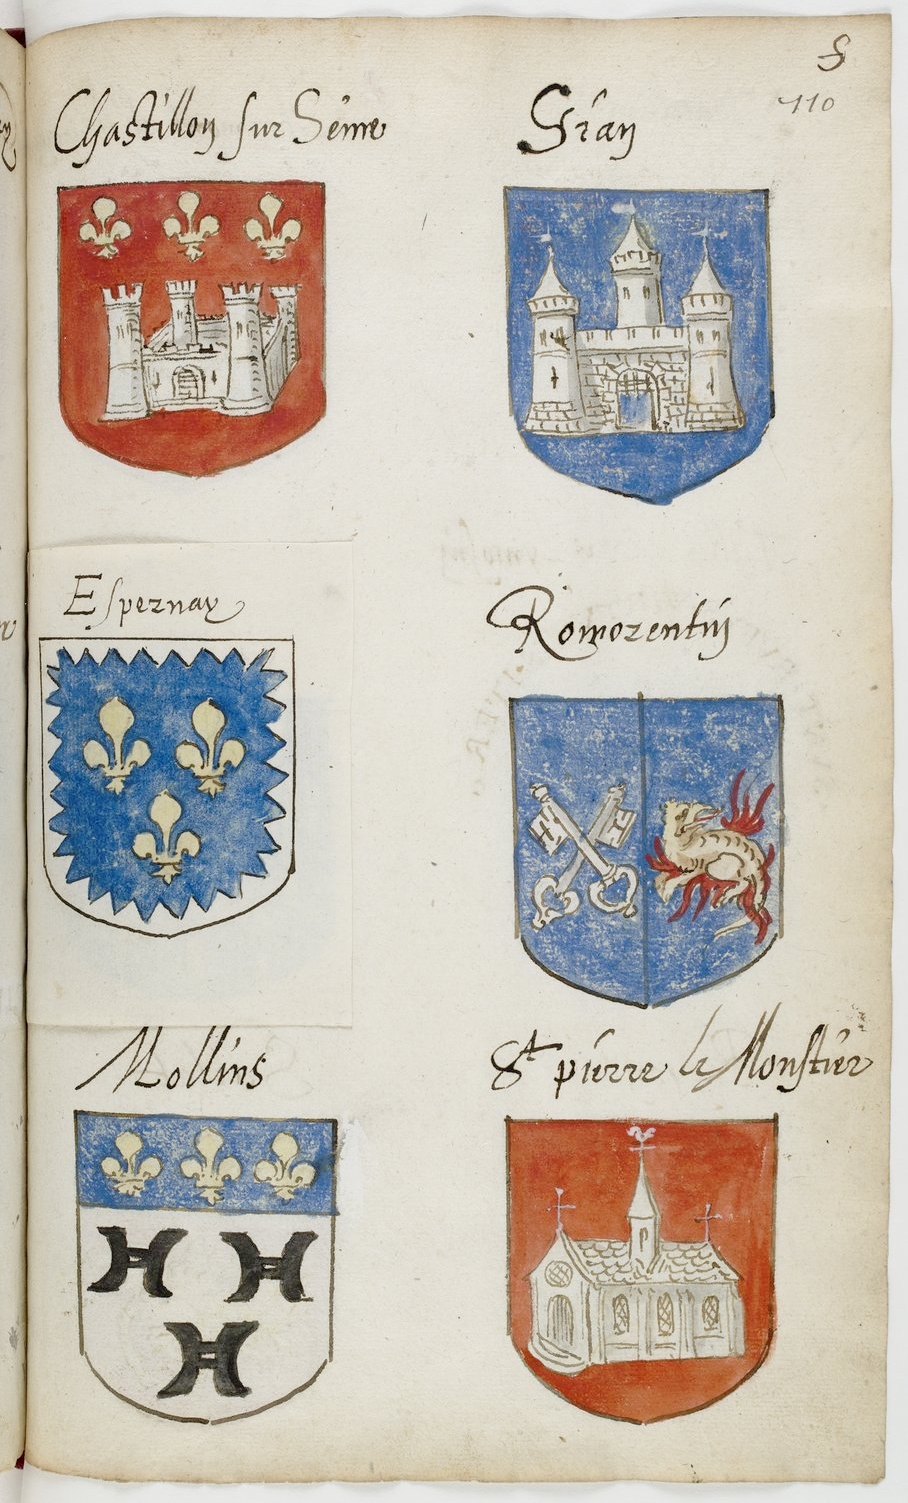 S
110
Chastillon sur Seine
Gian
Espernay
Romorentin
Mollins
St pierre le Monstier